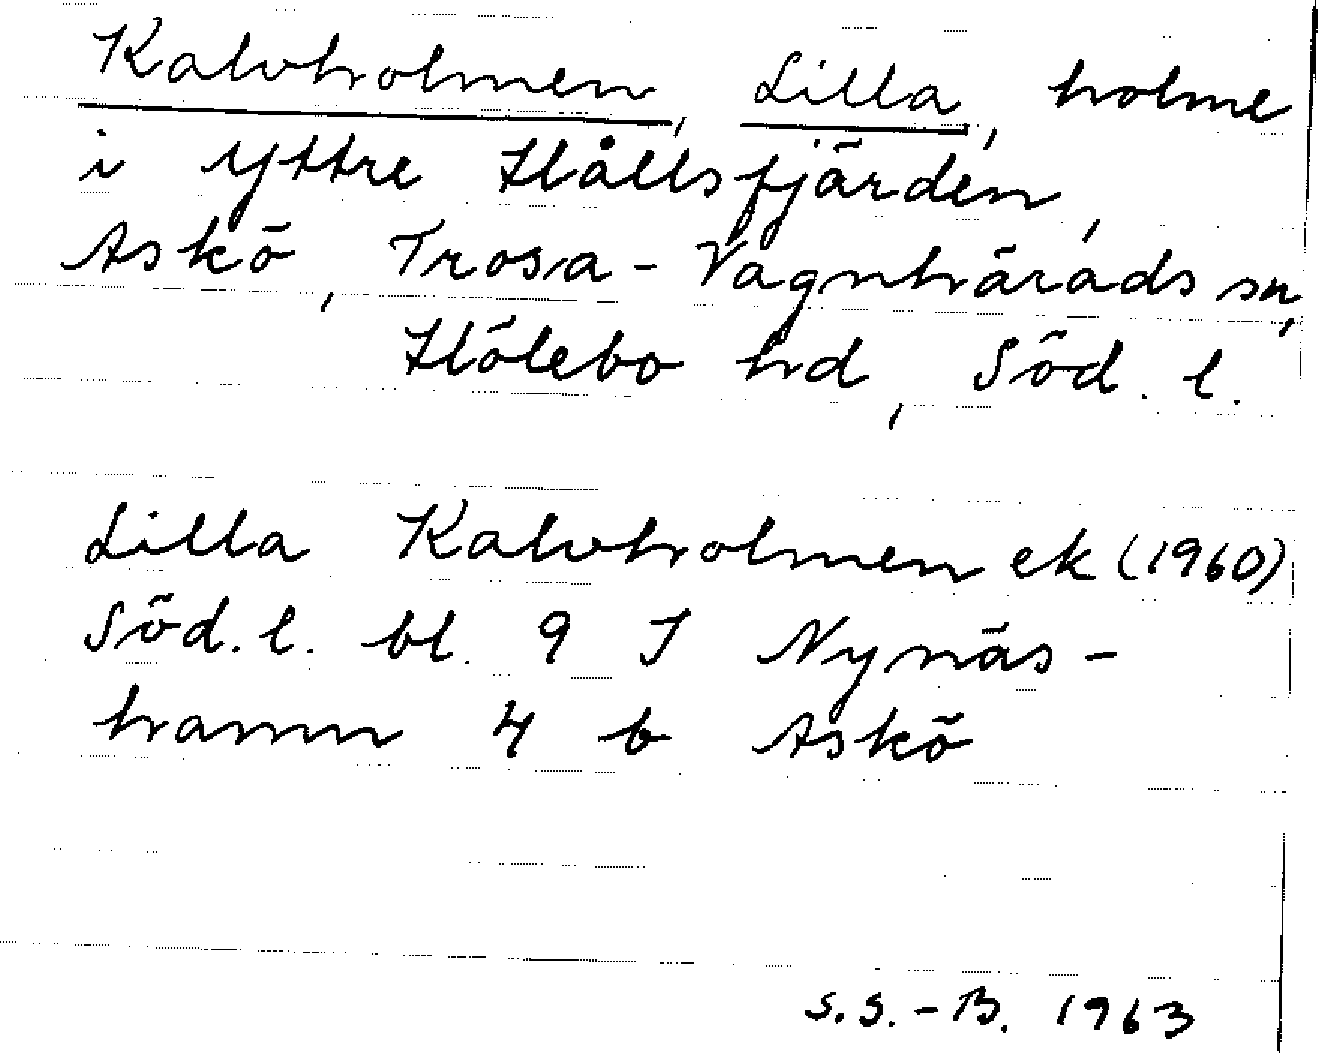 Kalvholmen, Lilla, holme
i Yttre Hållsfjärden,
Askö, Trosa-Vagnhärads sn,
Hölebo hd, Söd. l.
Lilla Kalvholmen ek (1960)
Söd. l. bl. 9 I Nynäs-
hamn 4 b Askö
S.S.-B. 1963